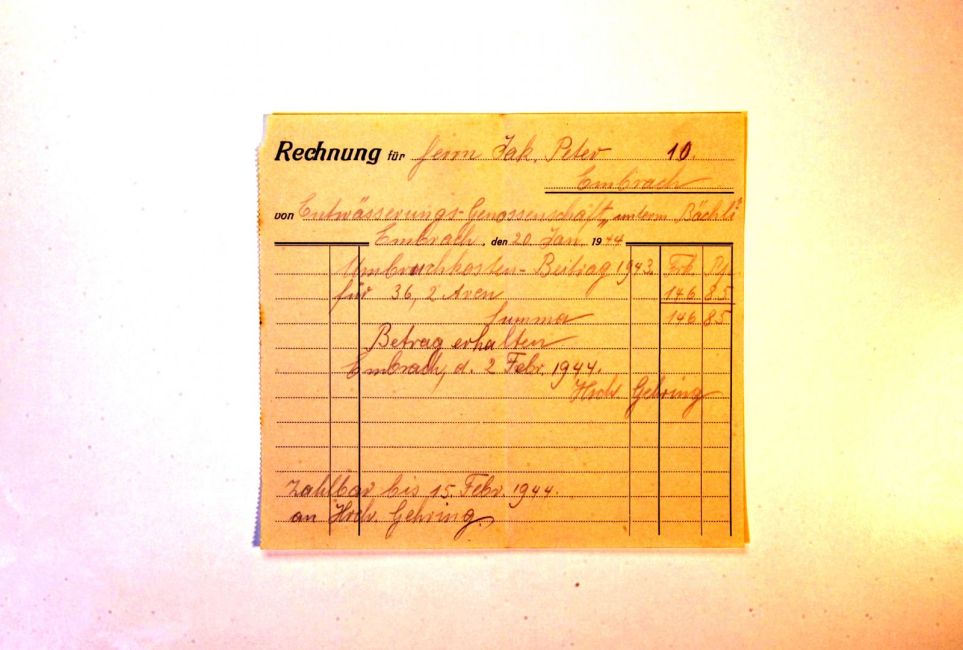 Rechnung für Herrn Jak. Peter 10.
Embrach
von Entwässerungs-Genossenschaft „unterm Bächli“
Embrach, den 20. Jan. 1944
Umbruchkosten-Beitrag 1943. Frk. Rp.
für 36,2 Aren 146 85
Summa 146 85
Betrag erhalten
Embrach, d. 2 Febr. 1944.
Hch. Gehring
Zahlbar bis 15. Febr. 1944.
an Hch. Gehring.